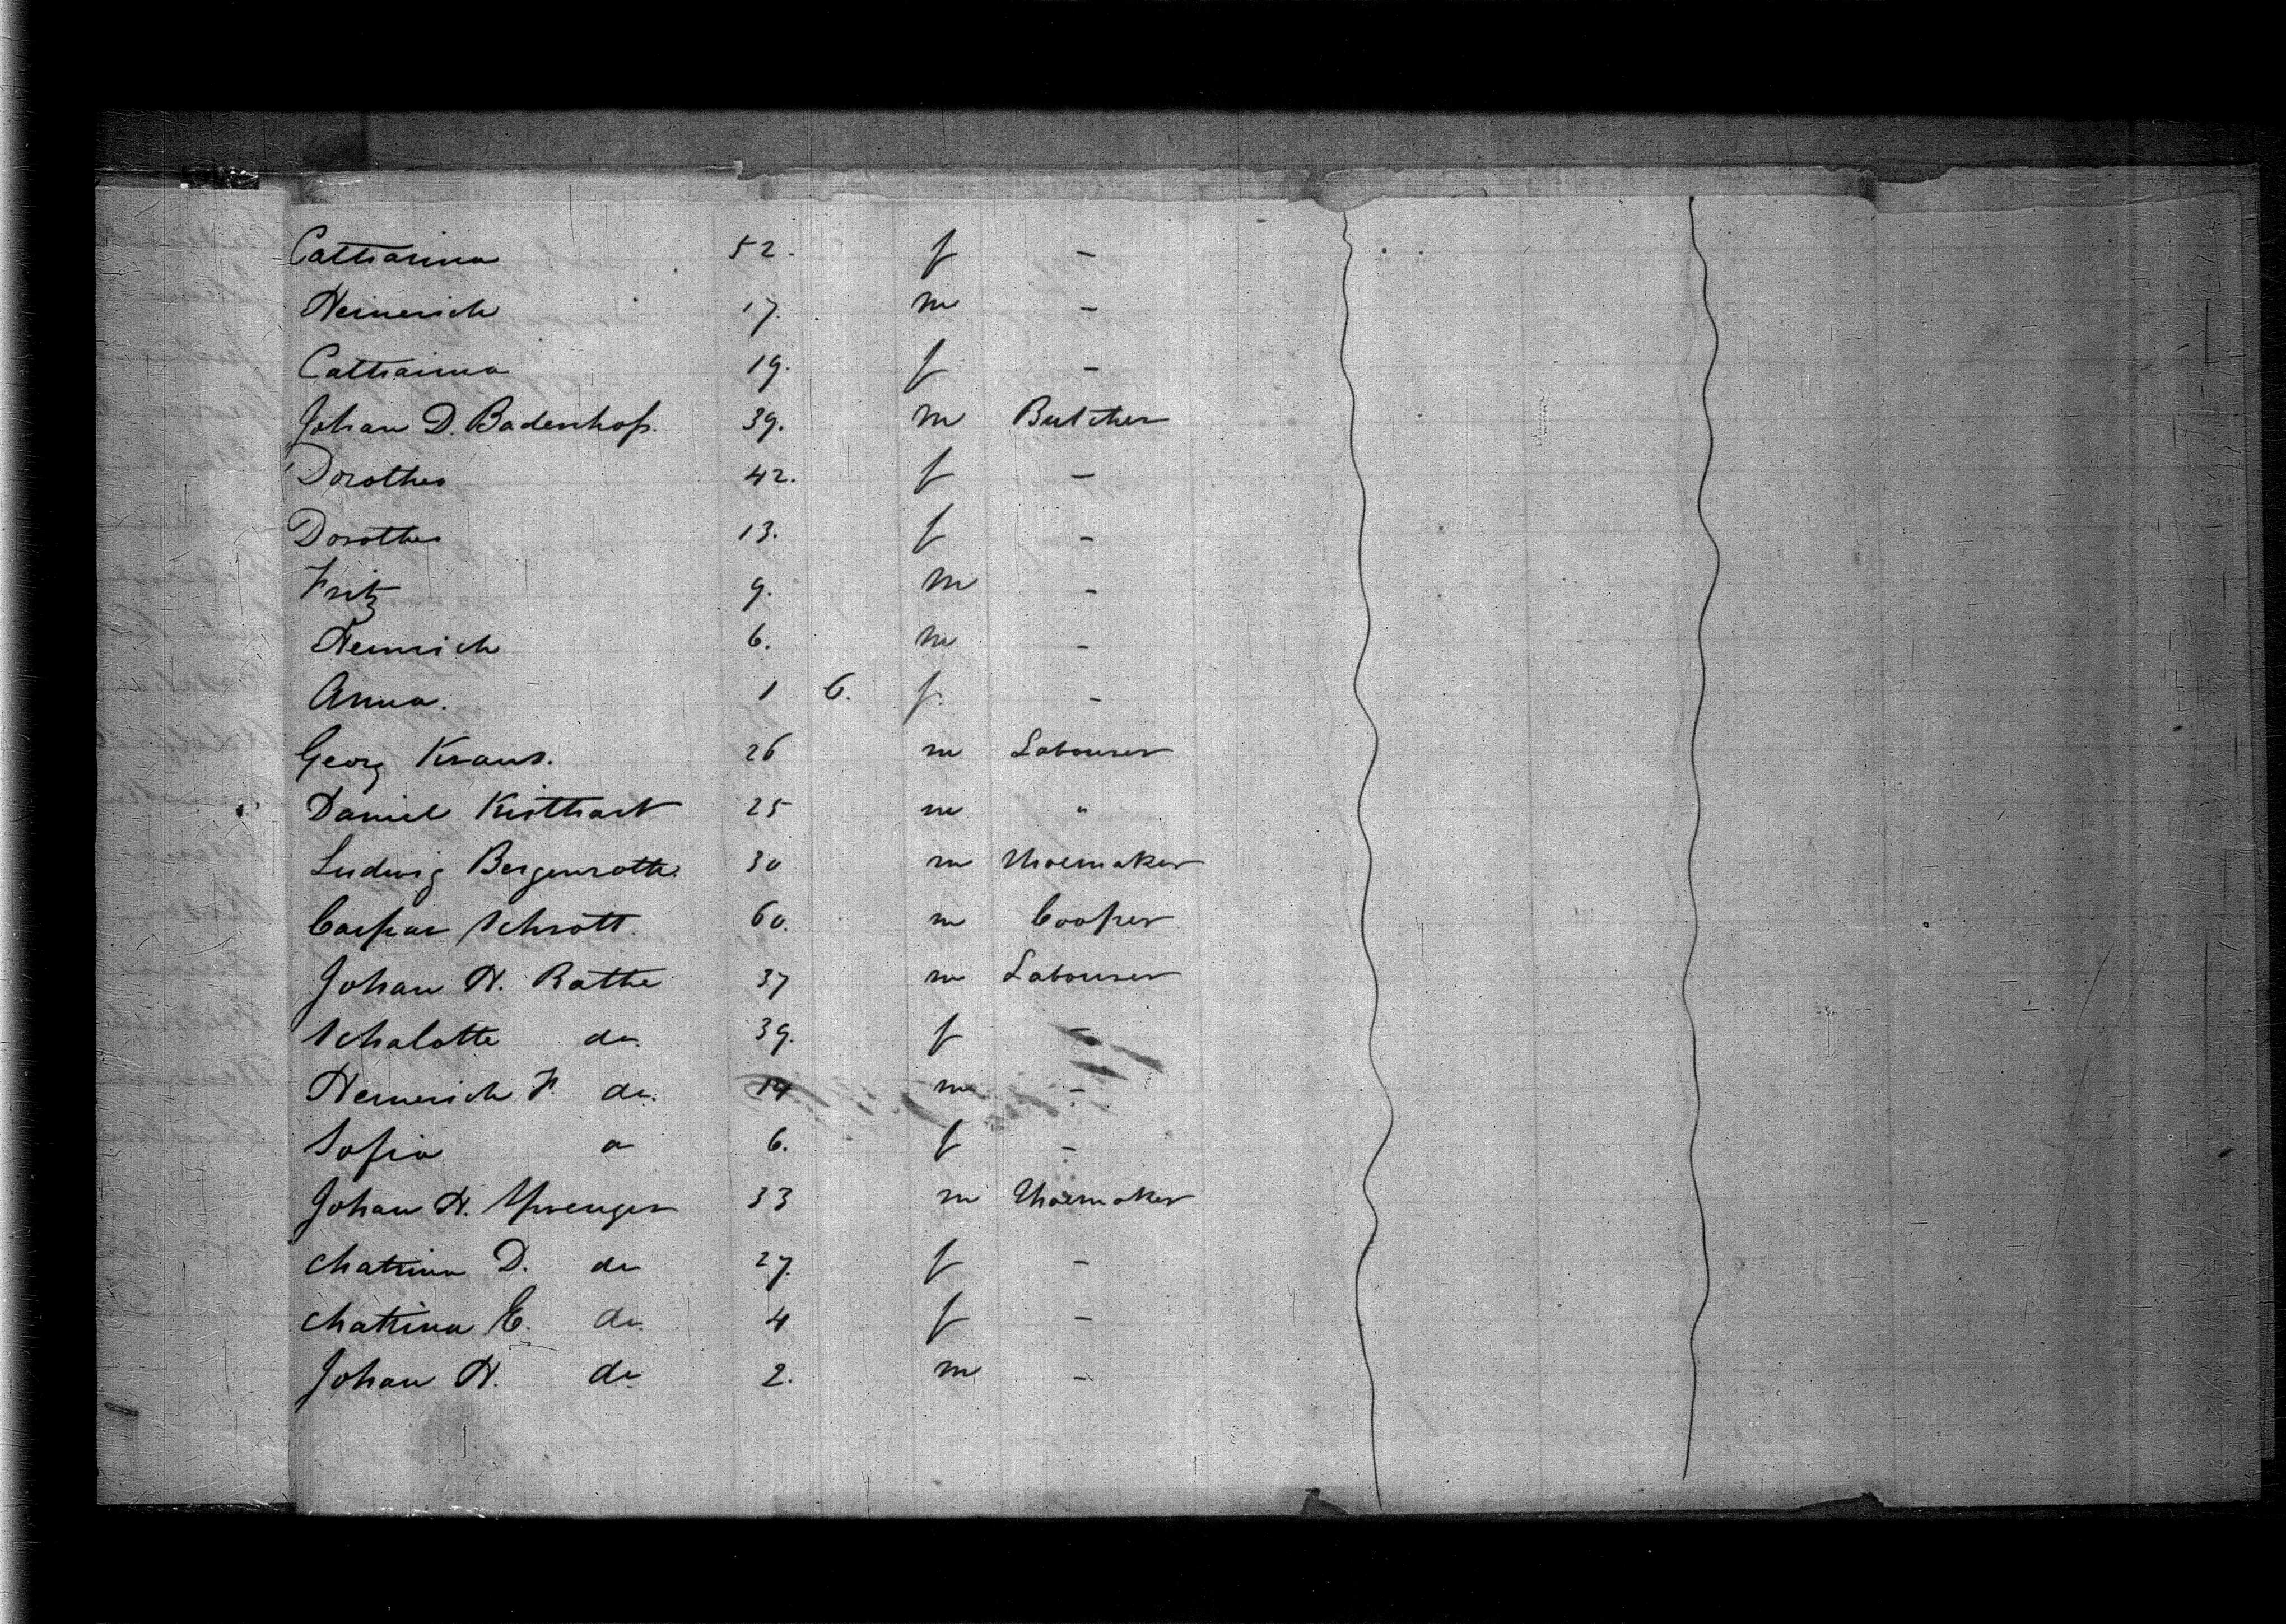 Catharina 52. f –
Heinerich 17. m –
Catharina 19. f –
Johan D. Badenhop. 39. m Butcher
Dorothea 42. f –
Dorothea 13. f –
Fritz 9. m –
Heinrich 6. m –
Anna. 1 6. f. –
Georg Kraus. 26 m Labourer
Daniel Kisthart 25 m "
Ludwig Bergenroth. 30 m Shoemaker
Caspar Schrott. 60. m Cooper
Johan H. Rathe 37 m Labourer
Schalotte do. 39. f –
Heinerich F. do. 14 m –
Sofia do 6. f –
Johan H. Sprenger 33 m Shoemaker
Chatrina D. do 27. f –
Chatrina E. do. 4 f –
Johan H. do. 2. m –